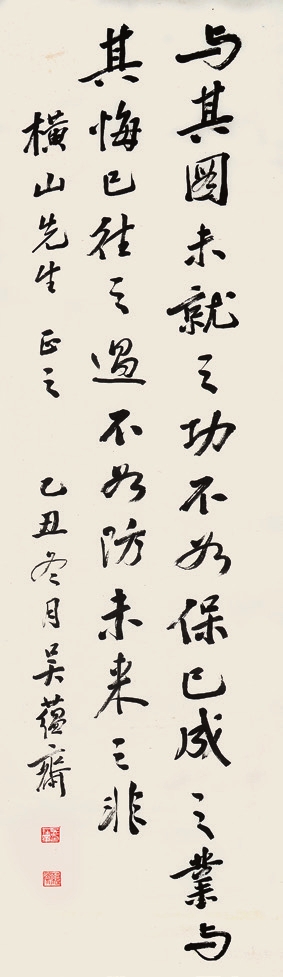 与其圖未就之功不如保已成之業与
其悔已往之過不如防未来之非
橫山先生 正之
乙丑冬月吴蕴齋